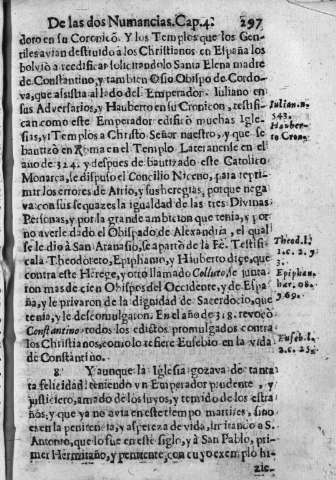 De las dos Numancias. Cap. 4. 297
doro en su Coronicō. Y los Templos que los Gen-
tiles avian destruido à los Christianos en España los
bolviò a reedificar solicitandolo Santa Elena madre
de Constantino, y tambien Osio Obispo de Cordo-
va, que asistia al lado del Emperador. Iuliano en
sus Adversarios, y Hauberto en su Cronicon, testifi-
can como este Emperador edificò muchas Igle-
sias, vì Templos a Christo Señor nuestro, y que se
bautizò en Roma en el Templo Lateranense en el
año de 324. y despues de bautizado este Catolico
Monarca, se dispuso el Concilio Niceno, para repri-
mir los errores de Arrio, y sus heregias, porque nega
va con sus sequazes la igualdad de las tres Divinas
Personas, y por la grande ambicion que tenia, y por
no averle dado el Obispado de Alexandria, el qual
se le diò à San Atanasio, se apartò de la Fè. Testifi-
cala Theodoreto, Epiphanio, y Hauberto dize, que
contra este Herege, y otro llamado Colluto, se junta-
ron mas de cien Obispos del Occidente, y de Espa-
ña, y le privaron de la dignidad de Sacerdocio, que
tenia, y le descomulgaron. En el año de 318. revocò
Constantino todos los edictos promulgados contra
los Christianos, como lo refiere Eusebio en la vida
de Constantino.
8. Y aunque la Iglesia gozava de tanta
ta felicidad, teniendo vn Emperador prudente, y
justiciero, amado de los suyos, y temido de los estra
ños, y que ya no avia en este tiempo martires, sino
era en la penitencia, y aspereza de vida, imitando a S.
Antonio, que lo fue en este siglo, y à San Pablo, pri-
mer Hermitaño, y penitente, con cuyo exemplo hi-
zie-
Iulian. n.
343.
Hauber-
to Cron.
Theod. l.
1. c. 2. y
3.
Epiphan.
har. 68.
y 69.
Euseb. l.
2. c. 25.